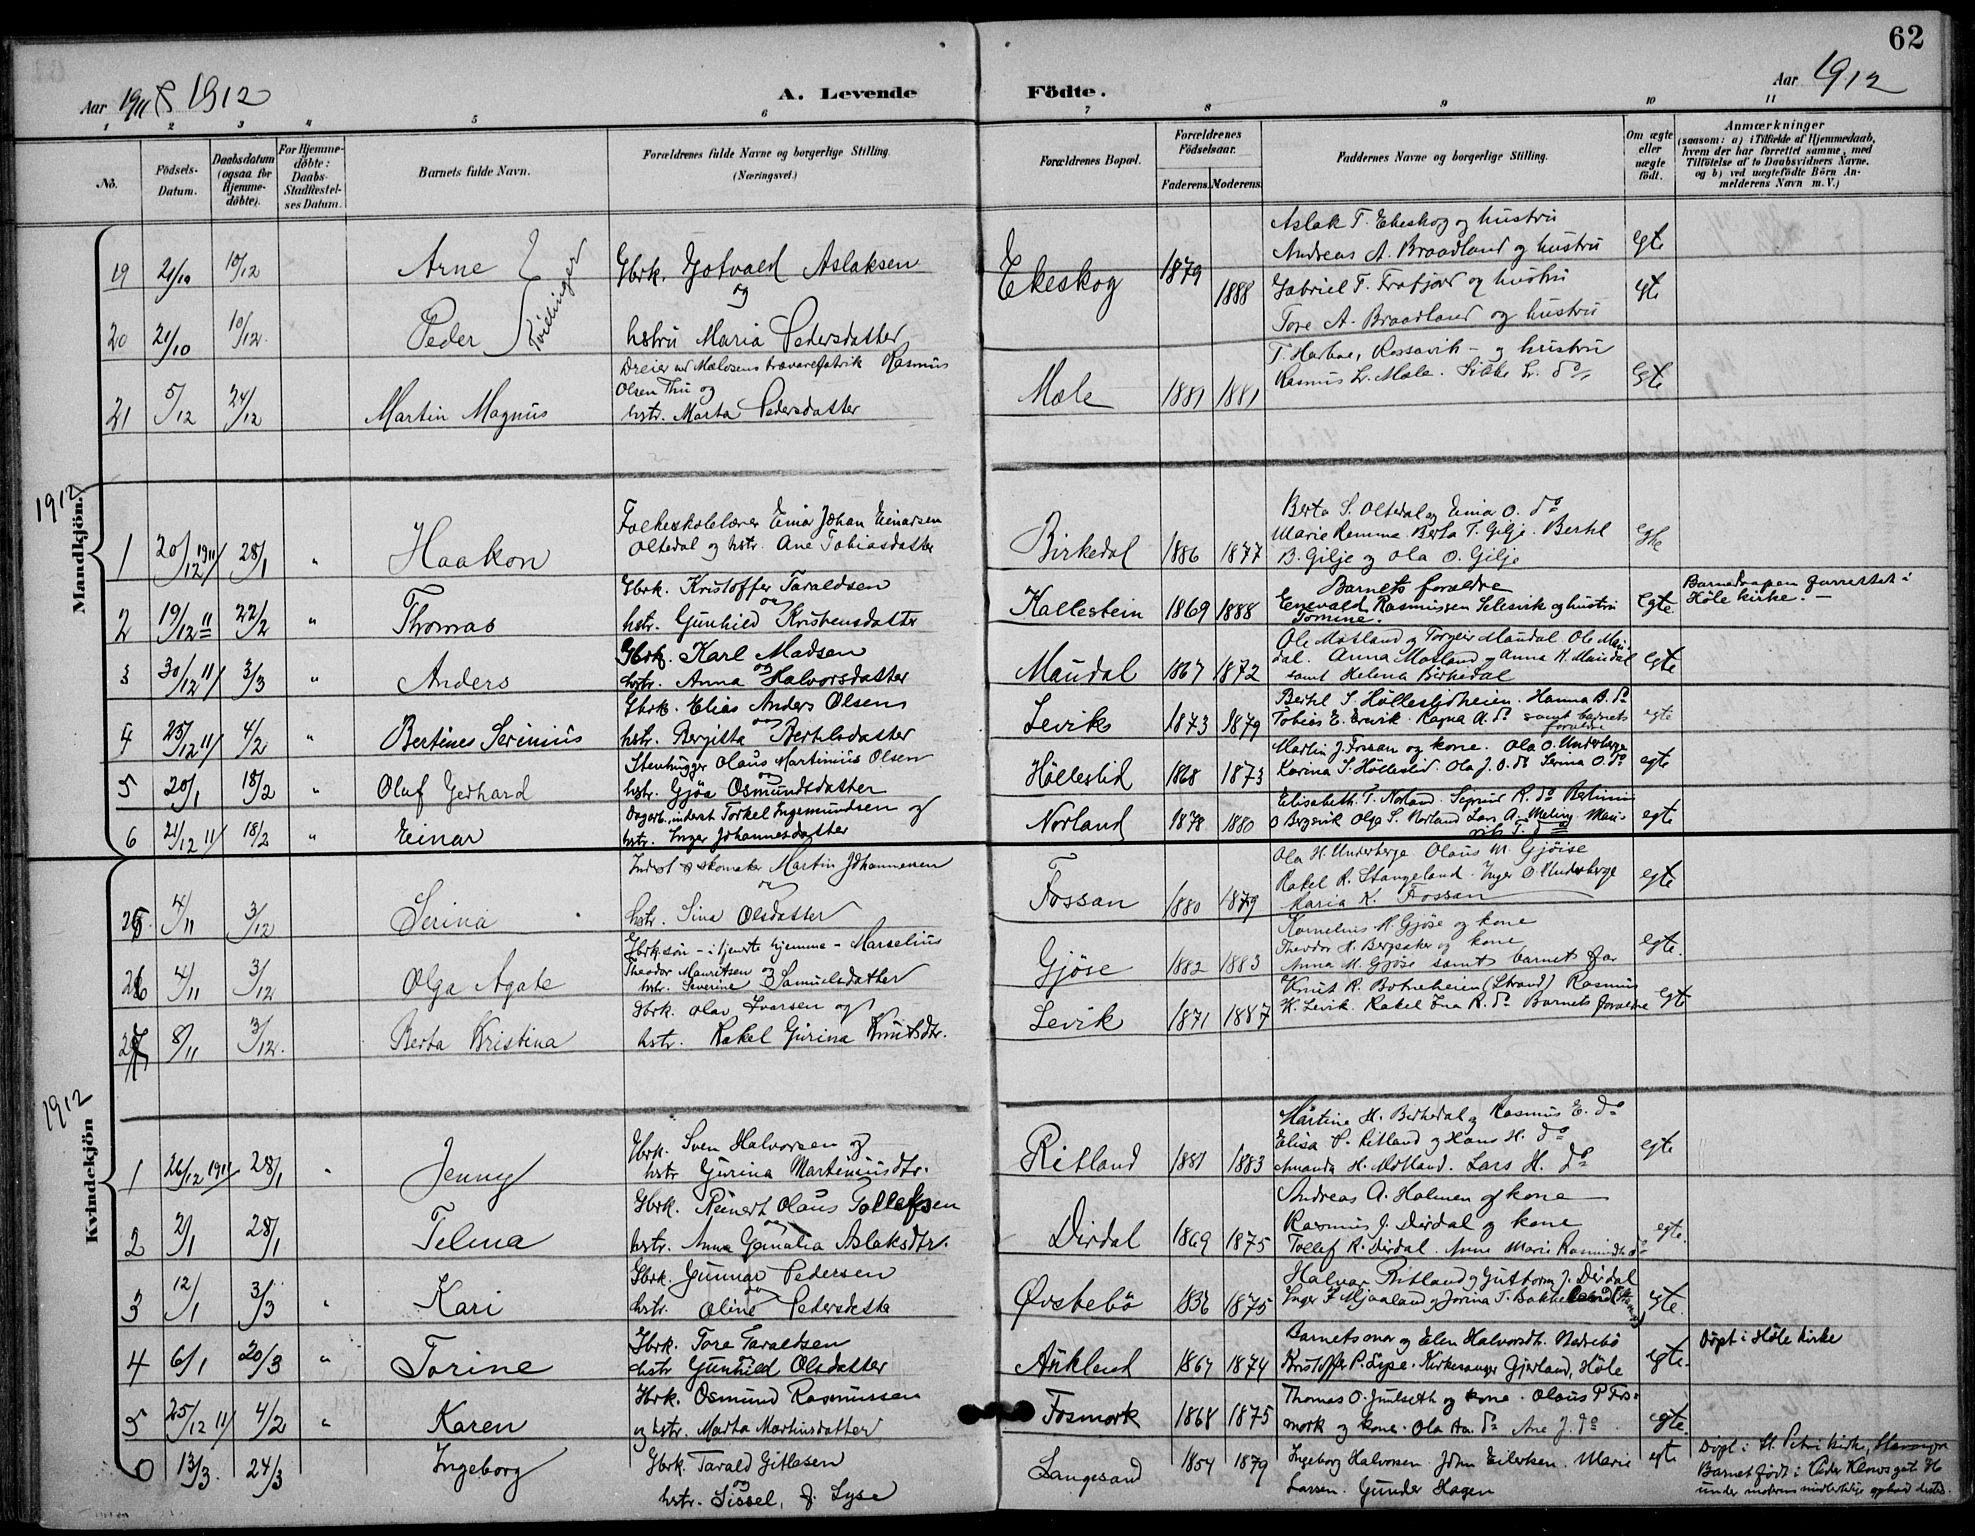 62
Aar 1911 & 1912
A. Levende Födte.
Aar 1912
1 2 3 4 5 6 7 8 9 10 11
No.
Födsels-Datum.
Daabsdatum (ogsaa for Hjemmedöbte).
For Hjemmedöbte: Daabs-Stadfæstelses Datum.
Barnets fulde Navn.
Forældrenes fulde Navne og borgerlige Stilling. (Næringsvei.)
Forældrenes Bopæl.
Forældrenes Födselsaar.
Faderens. Moderens.
Faddernes Navne og borgerlige Stilling.
Om ægte eller uægte födt.
Anmærkninger
(saasom: a) i Tilfælde af Hjemmedaab,
hvem der har forrettet samme, med
Tilföielse af to Daabsvidners Navne,
og b) ved uægtefödte Börn An-
melderens Navn m. V.)
Mandkjön.
19 21/10 10/12 Arne Tvillinger Gbrk. Gotvald Aslaksen og Ekeskog 1879 1888 Aslak T. Ekeskog og hustru
Andreas A. Braadland og hustru egte
20 21/10 10/12 Peder hstru Maria Pedersdatter Gabriel T. Frafjord og hustru
Tore A. Braadland og hustru egte
21 5/12 24/12 Martin Magnus Dreier ved Mælesens trævarefabrik Rasmus
Olsen Thu og
hstr. Marta Pedersdatter Mæle 1881 1881 og hustru
Rasmus Mæle. egte
1912
1 20/12 1911 28/1 " Haakon Folkeskolelærer Einar Johan Einarsen
Oltedal og hstr. Ane Tobiasdatter Birkedal 1886 1877 Berta S. Oltedal og Einar O. do
Marie Remma Berta T. Gilje. Bertel
B. Gilje og Ola O. Gilje egte
2 19/12 11 22/2 " Thomas Gbrk. Kristoffer Taraldsen
og
hstr. Gunhild Kristensdatter Kallestein 1869 1888 Barnets forældre
Enevald Rasmussen Selesvik og hustru
Tomine. egte Barnedaapen forrettet i
Höle kirke.
3 30/12 11 3/3 " Anders Gbrk. Karl Madsen
og
hstr. Anna Halvorsdatter Maudal 1867 1872 Ole Motland og Torgeir Maudal. Ole Mau-
dal. Anna Motland og Anna K. Maudal
samt Helena Birkedal egte
4 25/12 11 4/2 " Bertines Serinius Gbrk. Elias Anders Olsen
og
hstr. Bergitta Bertelsdatter Levik 1873 1879 Bertel S. Höllesliheien. Hanna B. do
Tobias E. Ervik. Ragna A. do samt barnets
forældre egte
5 20/1 18/2 " Oluf Gerhard Stenhugger Olaus Martinius Olsen
og
hstr. Gjöa Osmundsdatter Hölleslid 1868 1873 Martin J. Fossan og kone. Ola O. Underberge
Karina S. Höllesli. Ola J. O. do Serina O. do egte
6 21/12 11 18/2 " Einar Dagarb., inderst Torkel Ingemundsen og
hstr. Inger Johannesdatter Norland 1878 1880 Elisabeth T. Norland. Sigrid R. do
O Bergevik Olga S. Norland Lars A. Meling egte
Kvindekjön
25. 4/11 3/12 Serina Inderst & skomaker Martin Johannesen
og
hstr. Sina Olsdatter Fossan 1880 1879 Ola H. Underberge Olaus M. Gjöise
Rakel R. Stangeland. Inger O. Underberge
Maria K. Fossan egte
26 4/11 3/12 Olga Agate Gbrk.sön - i tjeneste hjemme - Marselius
Theodor Mauritsen og
hstr. Severine Samuelsdatter Gjöse 1882 1883 Kornelius M. Gjöse og kone
Theodor H. Bergsaker og kone
Anna M. Gjöse samt barnet far egte.
27 8/11 3/12. Berta Kristina Gbrk. Olav Ivarsen og
hstr. Rakel Gurina Knutsdtr. Levik 1871 1887 Knut R. Botneheien (Strand) Rasmus
K. Levik. Rakel Ina R. do Barnets forældre egte
1912
1 26/12 1911 28/1 " Jenny Gbrk. Sven Halvorsen og
hstr Gurina Martiniusdtr. Ritland 1881 1883 Martine H. Birkedal og Rasmus E. do
Elisa S. Ritland og Hans H. do
Amanda H. Motland. Lars H. do egte
2 2/1 28/1 Telma Gbrk. Reinert Olaus Tollefsen
og
hstr. Anna Gamalia Aslaksdtr. Dirdal 1869 1875 Andreas A. Holmen og kone
Rasmus J. Dirdal og kone
Tollef R. Dirdal. Anne Marie Rasmusdtr do egte.
3 12/1 3/3 " Kari Gbrk. Gunnar Pedersen
og
hstr. Oline Pedersdatter Övstebö 1836 1875 Halvor Ritland og Guttorm J. Dirdal
Inger F Mjaaland og Jorina T. egte.
4 6/1 20/3 " Torine Gbrk. Tore Taraldsen
og
hstr Gunhild Olsdatter Auklend 1867 1874 Barnets mor og Elen Halvorsdtr. Nedrebö
Kristoffer P. Lyse. Kirkesanger Gjerland, Höle egte. Döpt i Höle kirke
5 25/12 11 4/2 " Karen Gbrk. Osmund Rasmussen
og hstr. Marta Martinsdatter Fosmork 1868 1875 Thomas O. Julseth og kone. Olaus P Fos-
mork og kone. Ola Aa. do Ane J. do egte.
6 13/3. 24/3 Ingeborg Gbrk. Tarald Gitlesen
og
hstr. Sissel, f. Lyse Langesand 1854 1879 Ingeborg Halvorsen John Eilertsen. Marie
Larsen. Gunder Hagen egte Döpt i St. Petri kirke, Stavanger
Barnet födt i Peder Klowsgat
under moderens midlertidige ophold dersted.